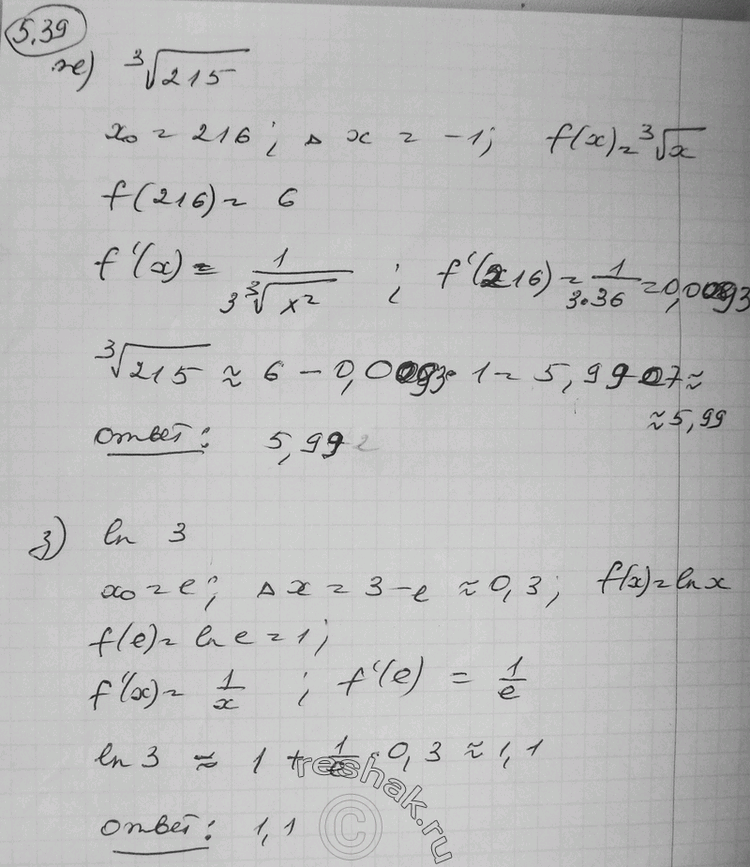 5.39
же) ∛215
x₀ = 216; Δx = -1; f(x) = ∛x
f(216) = 6
f'(x) = 1/(3∛x²); f'(216) = 1/(3·36) = 0,0093
∛215 ≈ 6 - 0,0093·1 = 5,9907 ≈
≈ 5,99
Ответ: 5,99
з) ln 3
x₀ = e; Δx = 3 - e ≈ 0,3; f(x) = ln x
f(e) = ln e = 1;
f'(x) = 1/x; f'(e) = 1/e
ln 3 ≈ 1 + 1/e · 0,3 ≈ 1,1
Ответ: 1,1
reshak.ru
©